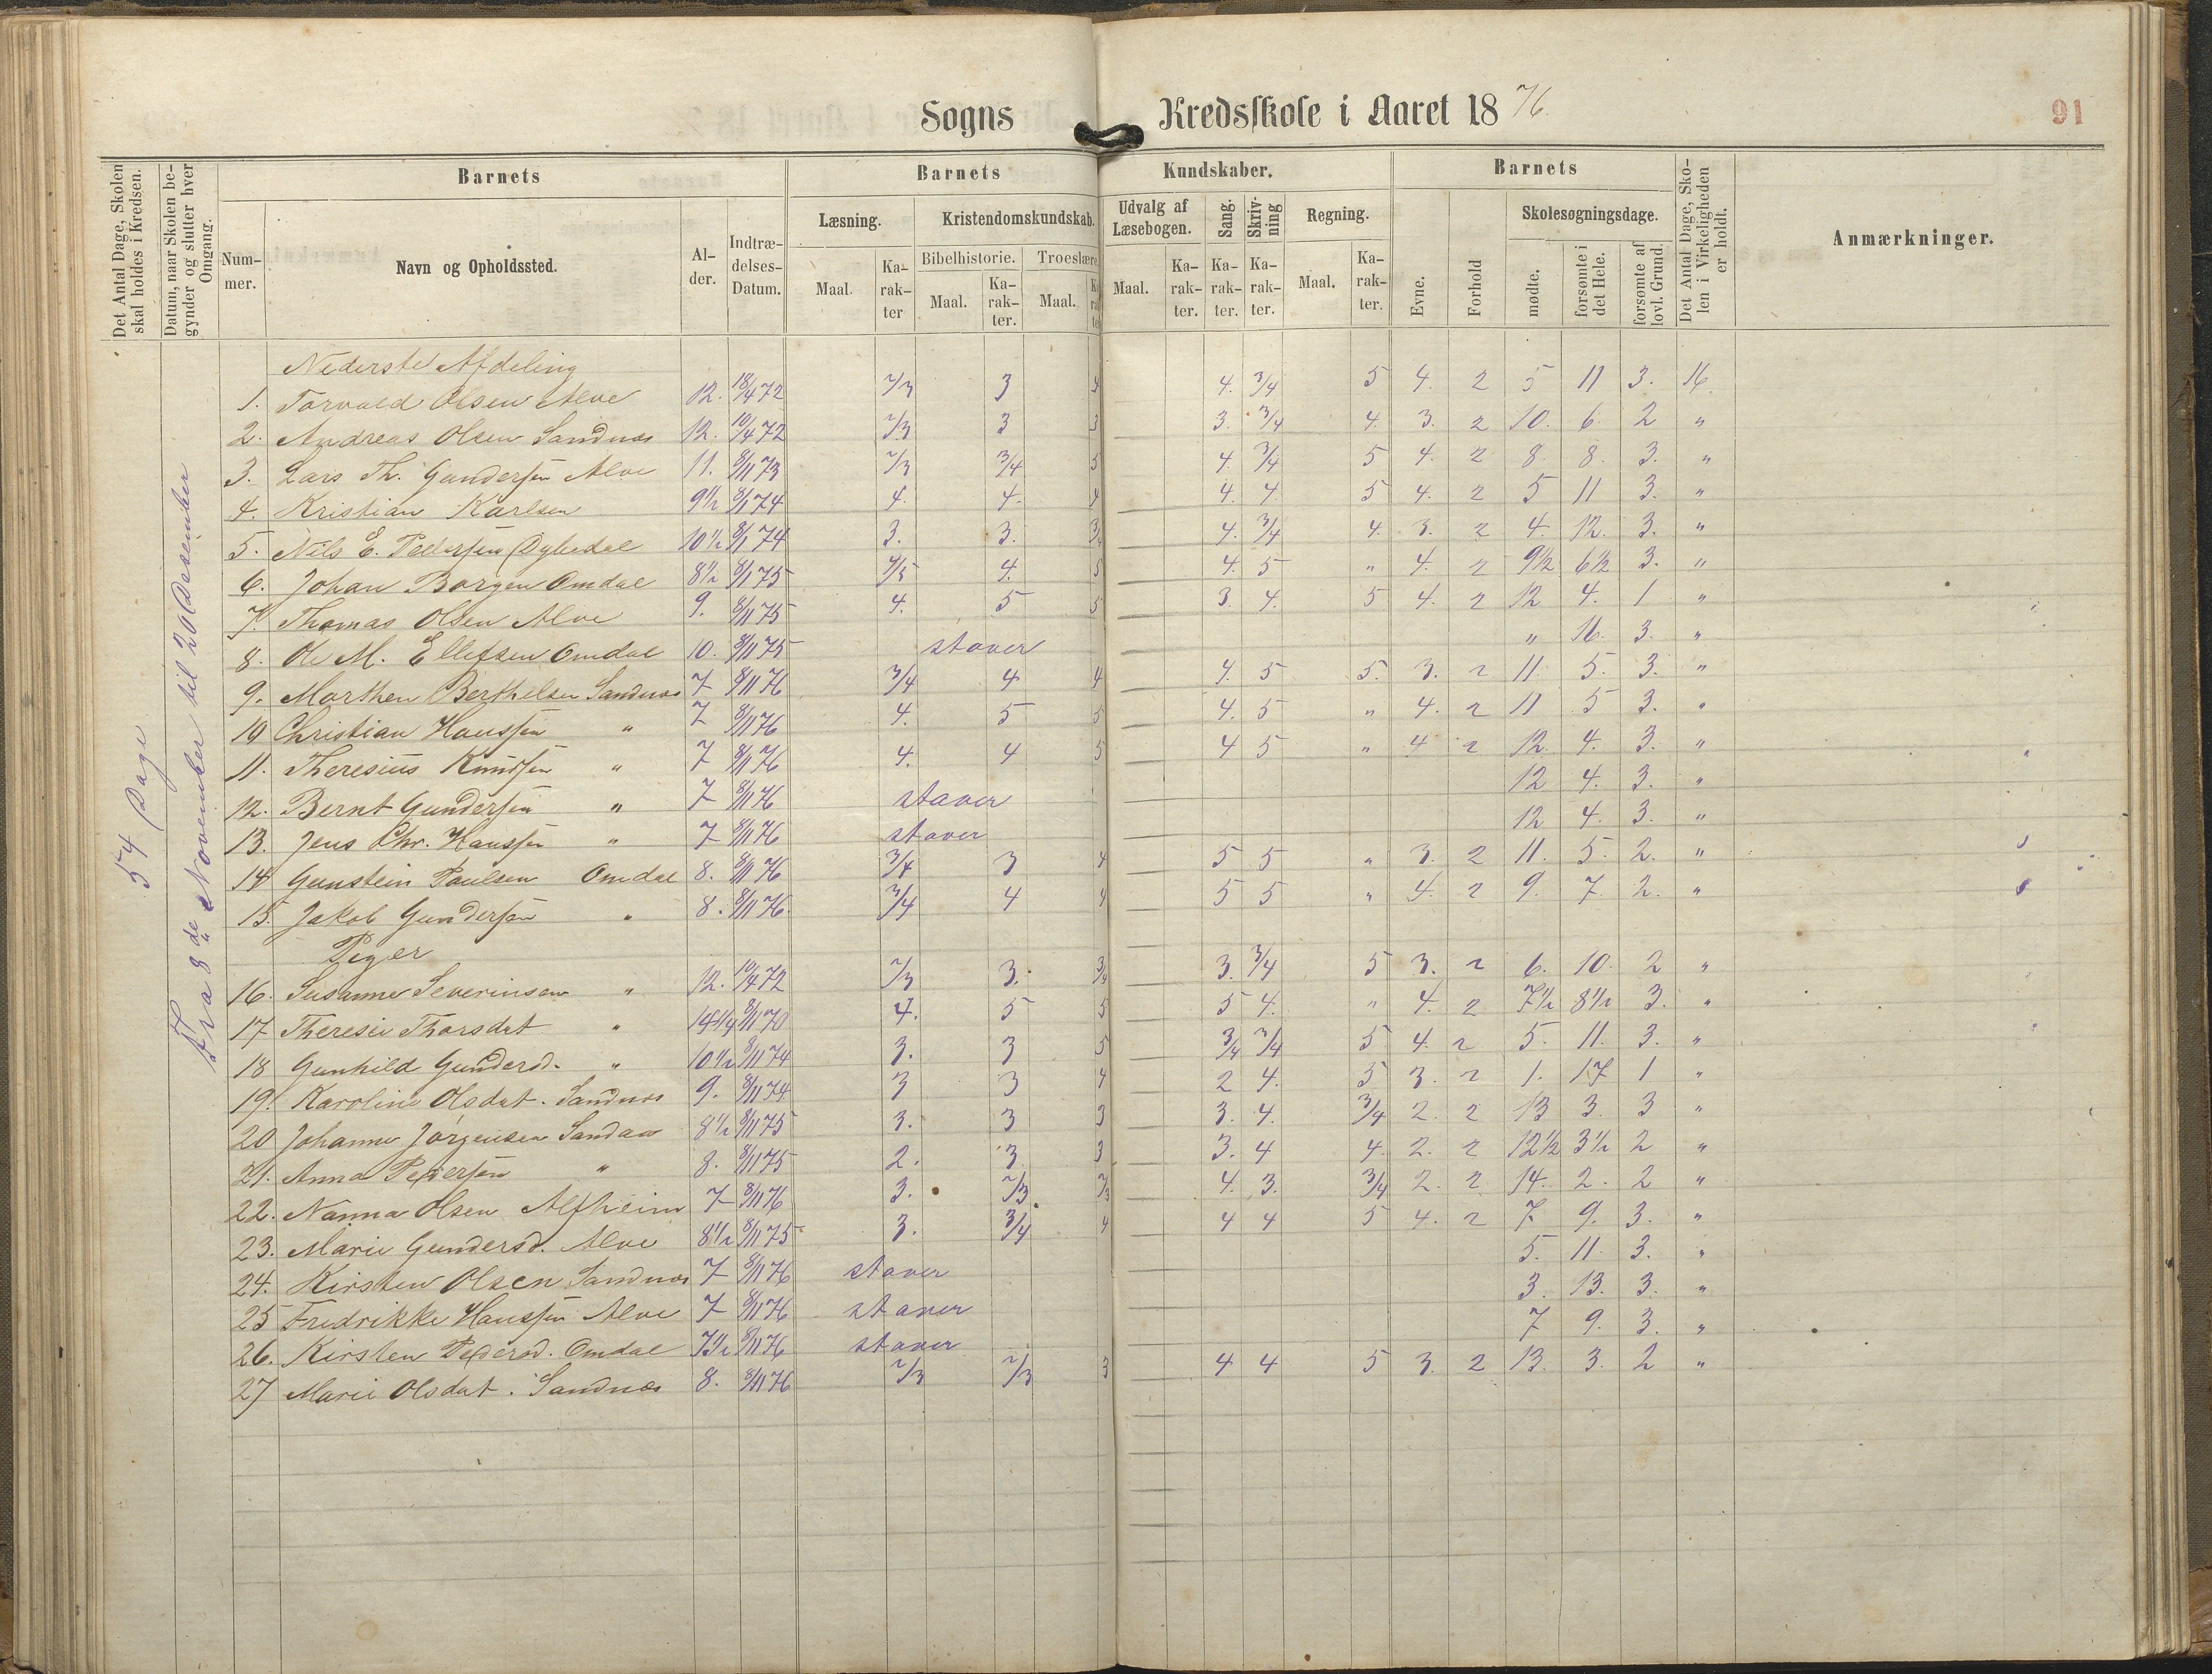 Sogns Kredsskole i Aaret 1876.
91
Det Antal Dage, Skolen skal holdes i Kredsen.
Datum, naar Skolen begynder og slutter hver Omgang.
Barnets
Barnets Kundskaber.
Barnets
Det Antal Dage, Skolen i Virkeligheden er holdt.
Anmærkninger.
Nummer.
Navn og Opholdssted.
Alder.
Indtrædelses-Datum.
Læsning.
Kristendomskundskab.
Udvalg af Læsebogen.
Sang.
Skrivning
Regning.
Evne.
Forhold
Skolesøgningsdage.
Bibelhistorie.
Troeslære
mødte.
forsømte i det Hele.
forsømte af lovl. Grund.
Maal.
Karakter
Maal.
Karakter.
Maal.
Karakter
Maal.
Karakter.
Karakter.
Karakter.
Maal.
Karakter.
54 Dage
Fra 8de November til 20 Desember
Nederste Afdeling
1. Torvald Olsen Alve 12. 18/4 72 2/3 3 4 4. 3/4 5 4. 2 5 11 3. 16.
2. Andreas Olsen Sandnæs 12. 10/4 72 2/3 3 3 3. 3/4 4. 3. 2 10. 6. 2 "
3. Lars Th. Gundersen Alve 11. 8/11 73 2/3 3/4 5 4. 3/4 5 4. 2 8. 8. 3. "
4. Kristian Karlsen 9 1/2 8/1 74 4. 4. 4 4. 4. 5 4. 2 5 11 3. "
5. Nils E. Pedersen Dybedal 10 1/2 8/1 74 3. 3. 3/4 4. 3/4 4. 3. 2 4. 12. 3. "
6. Johan Borgen Omdal 8 1/2 8/1 75 4/5 4. 5 4. 5 " 4. 2 9 1/2 6 1/2 3. "
7. Thomas Olsen Alve 9. 8/11 75 4. 5 5 3. 4. 5 4. 2 12 4. 1 "
8. Ole M. Ellefsen Omdal 10. 8/11 75 staver " 16. 3. "
9. Marthen Berthelsen Sandnæs 7 8/11 76 3/4 4 4 4. 5 5. 3. 2 11. 5. 3. "
10 Christian Hanssen " 7 8/11 76 4. 5 5 4. 5 " 4. 2 11 5 3. "
11. Theresius Knudsen " 7 8/11 76 4. 4 5 4 5 " 4 2 12. 4. 3. "
12. Bernt Gundersen " 7 8/11 76 staver 12 4. 3. "
13. Jens Chr. Hanssen " 7 8/11 76 staver 12 4. 3. "
14 Gunstein Paulsen Omdal 8. 8/11 76 3/4 3 4 5 5 " 3. 2 11. 5. 2. "
15. Jakob Gundersen " 8. 8/11 76. 3/4 4 4 5 5 " 4. 2 9. 7. 2. "
Piger
16. Susanne Severinsen " 12. 10/4 72 2/3 3. 3/4 3. 3/4 5 3. 2 6. 10. 2 "
17 Theresie Thorsdat " 14 1/4 8/11 70 4. 5 5 5 4. " 4. 2 7 1/2 8 1/2 3. "
18 Gunhild Gundersd. " 10 1/2 8/11 74 3. 3 5 3/4 3/4 5 4. 2 5. 11. 3. "
19. Karoline Olsdat. Sandnæs 9. 8/11 74 3 3 4 2 4. 5 3. 2 1. 17 1 "
20 Johanne Jørgensen Sandaa 8 1/2 8/11 75 3. 3 3 3. 4. 3/4 2. 2 13 3. 3 "
21. Anna Pedersen " 8. 8/11 75 2. 3. 3 3. 4 4. 2. 2 12 1/2 3 1/2 2 "
22. Nanna Olsen Alfheim 7 8/11 76 3. 2/3 2/3 4. 3. 3/4 2. 2 14. 2. 2 "
23. Marie Gundersd. Alve 8 1/2 8/11 75 3. 3/4 4 4 4 5 4. 2 7. 9. 3. "
24. Kirsten Olsen Sandnæs 7 8/11 76 staver 5. 11. 3. "
25 Fredrikke Hanssen Alve 7 8/11 76 staver 3. 13. 3. "
26. Kirsten Pedersd. Omdal 7 1/2 8/11 76 staver 7 9. 3. "
27 Marie Olsdat. Sandnæs 8. 8/11 76 2/3 2/3 3 4 4 5 3. 2 13. 3. 2 "